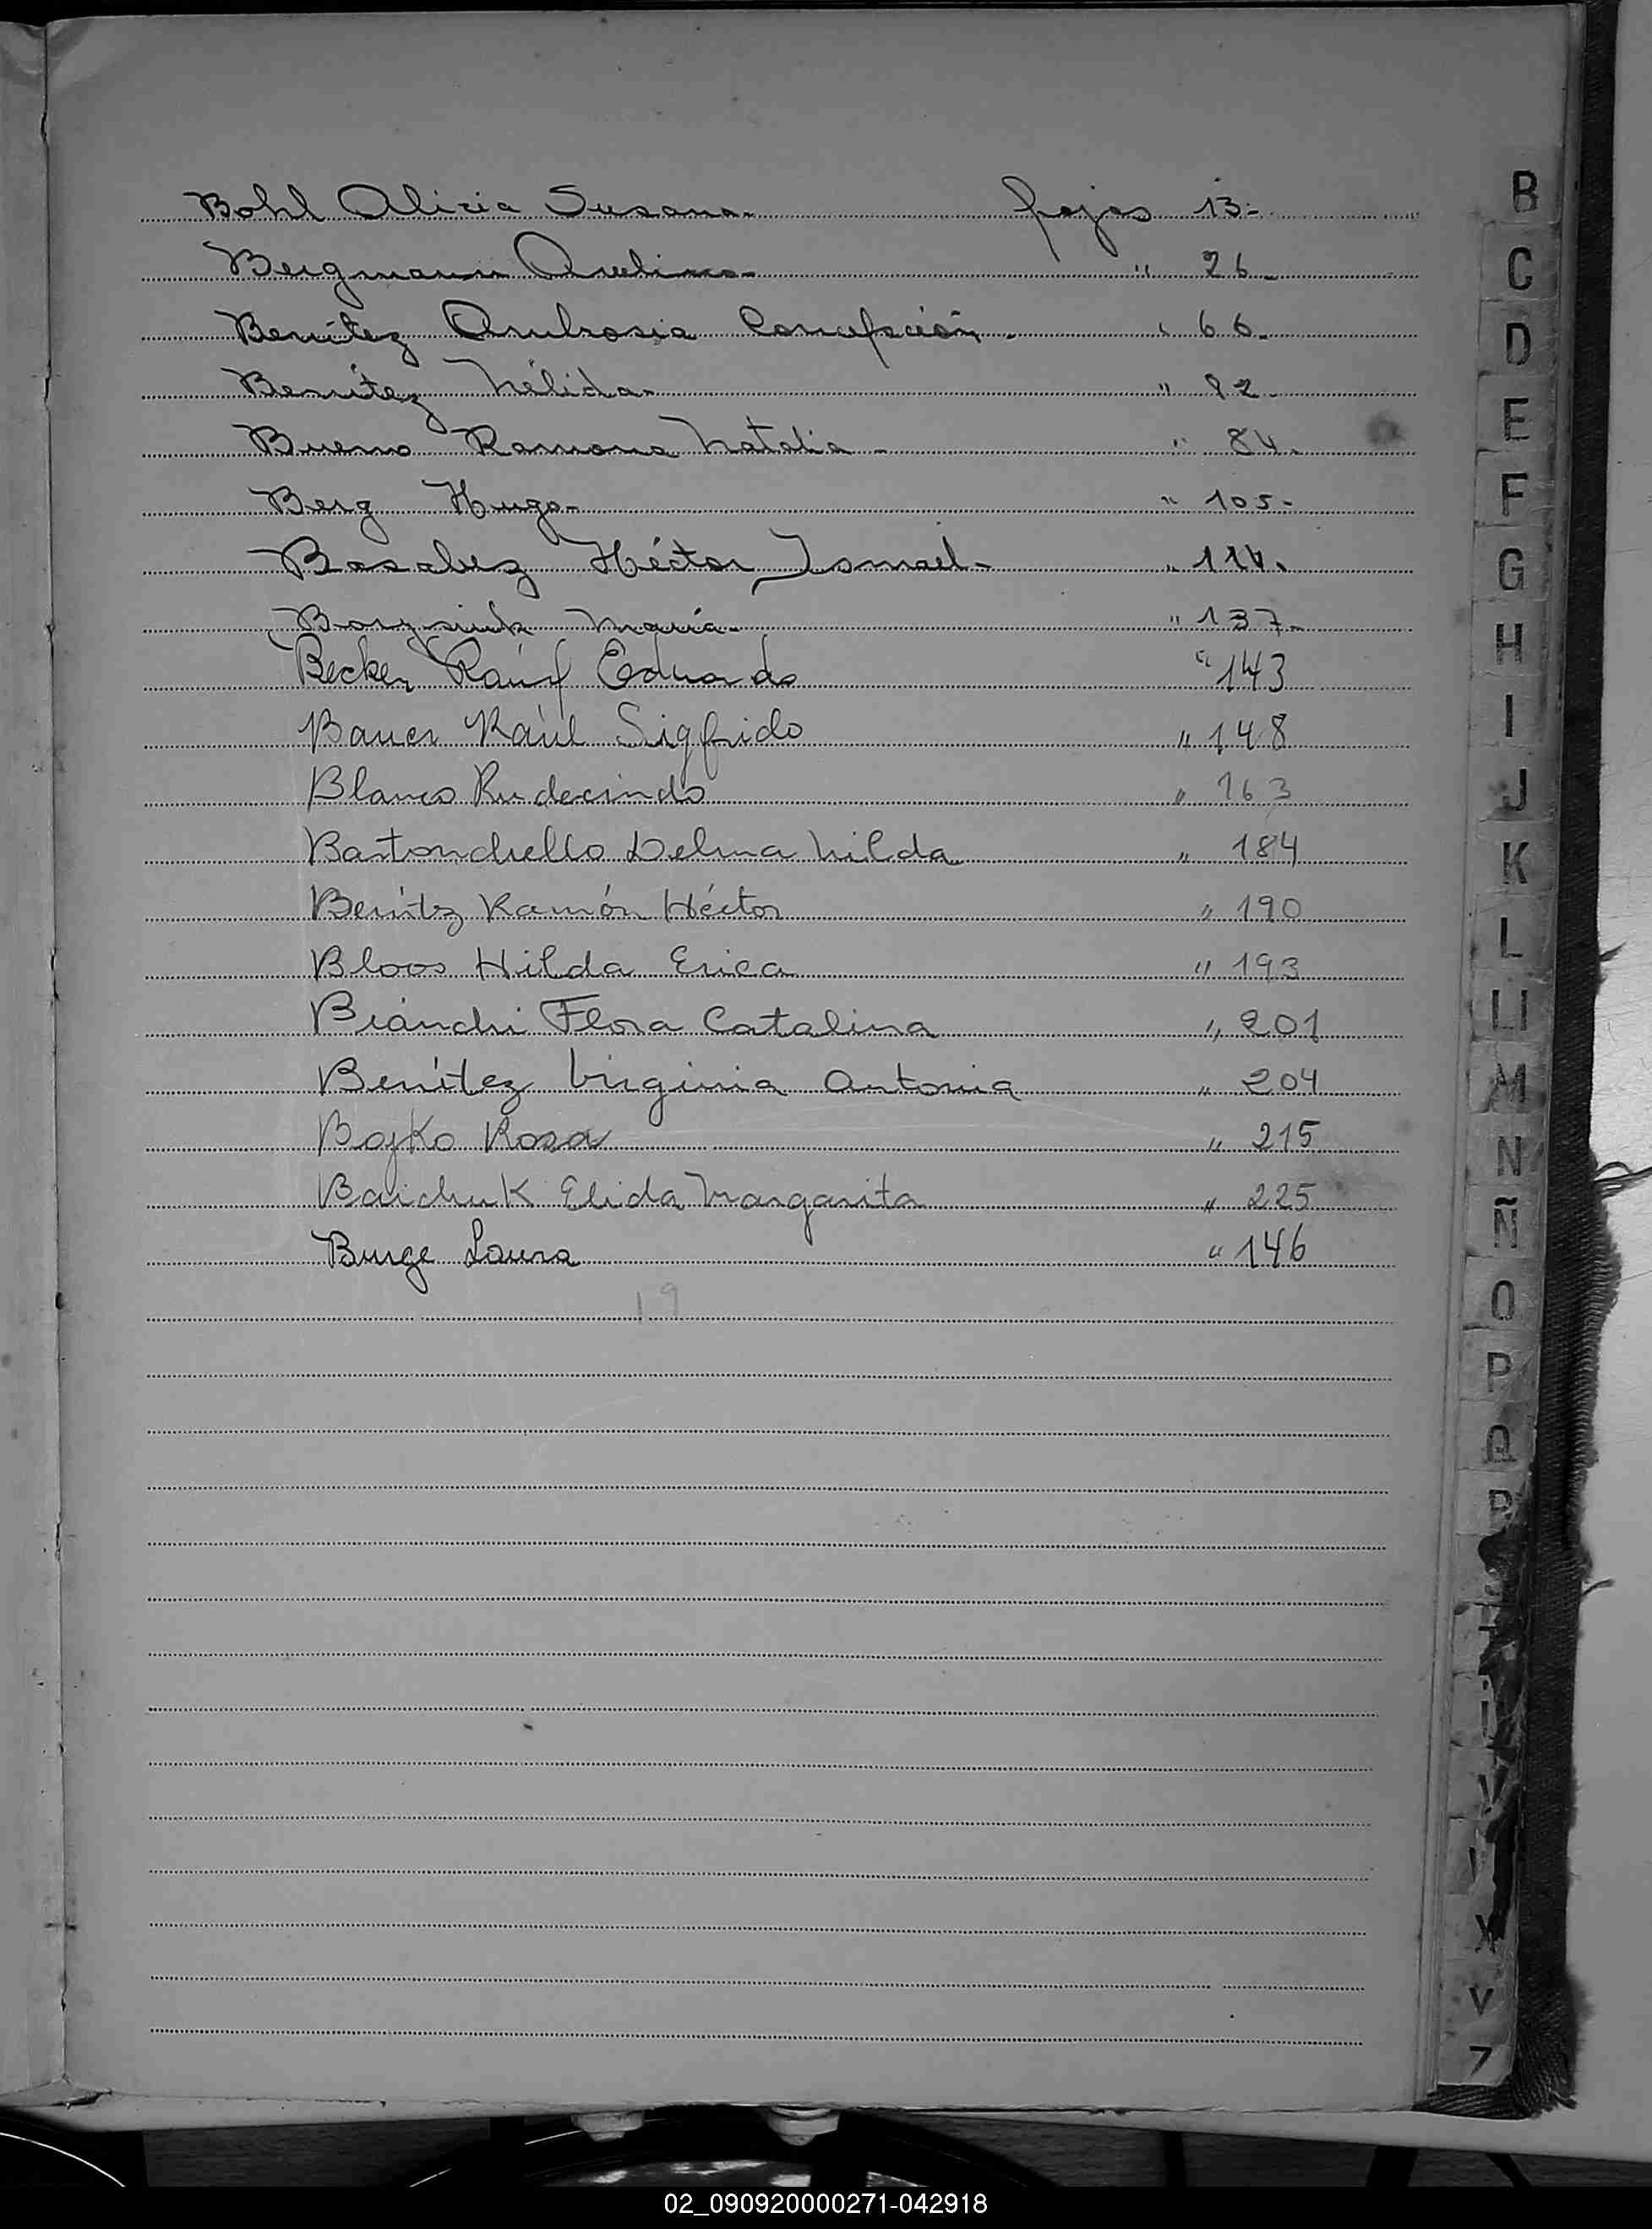 Bohl Alicia Susana. fojas 13.-
Bergmann Avelino.- " 26.-
Benítez Ambrosia Concepción.- " 66.-
Benítez Nélida.- " 82.-
Bueno Ramona Natalia.- " 84.-
Berg Hugo.- " 105.-
Basabez Héctor Ismael.- " 114.
María.- " 137.-
Becker Raúl Eduardo " 143
Bauer Raúl Sigfrido " 148
Blanco Rudecindo " 163
Bartonchello Delma Nilda " 184
Benítez Ramón Héctor " 190
Bloos Hilda Erica " 193
Bianchi Flora Catalina " 201
Benítez Virginia Antonia " 204
Bojko Rosa " 215
Baichuk Elida Margarita " 225
Burge Laura " 146
19
B
C
D
E
F
G
H
I
J
K
L
Ll
M
N
Ñ
O
P
Q
R
V
X
02_090920000271-042918